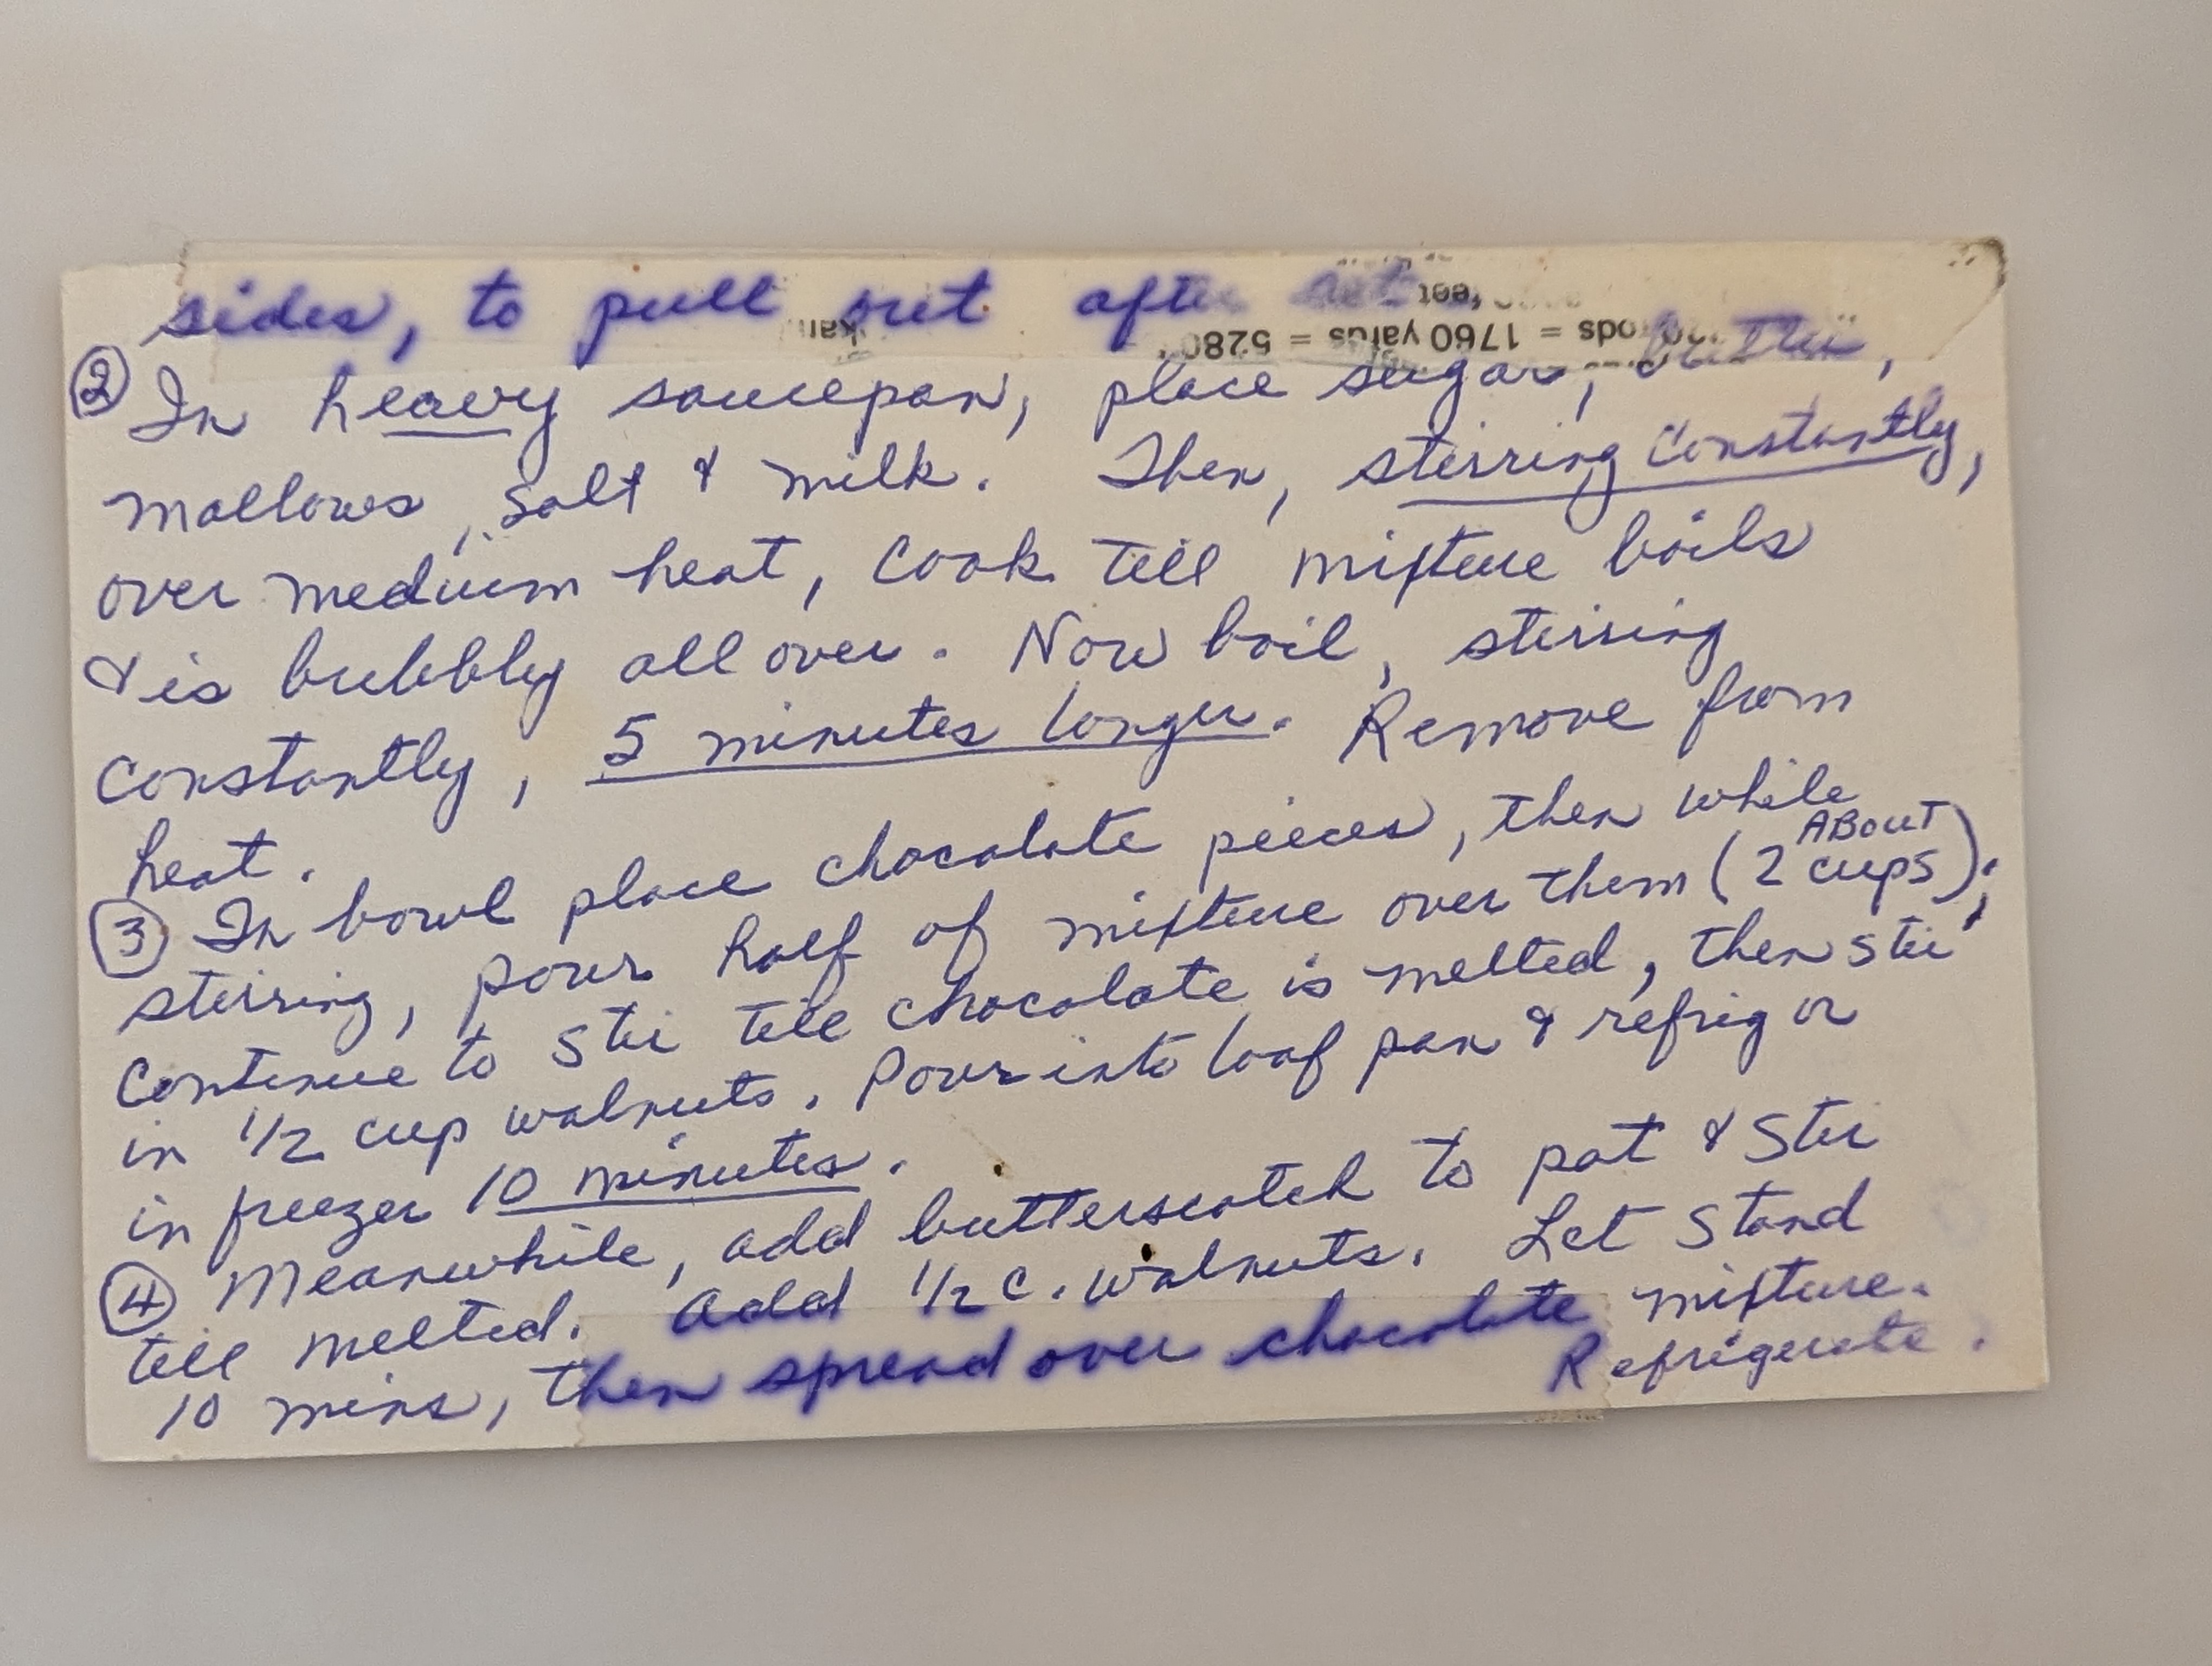 sides, to pull out after
② In heavy saucepan, place sugar, butter,
mallows, salt & milk. Then, stirring constantly,
over medium heat, cook till mixture boils
& is bubbly all over. Now boil, stirring
constantly, 5 minutes longer. Remove from
heat.
③ In bowl place chocolate pieces, then while
stirring, pour half of mixture over them (ABOUT 2 cups);
continue to stir till chocolate is melted, then stir
in 1/2 cup walnuts. Pour into loaf pan & refrig or
in freezer 10 minutes.
④ Meanwhile, add butterscotch to pot & stir
till melted. Add 1/2 c. walnuts. Let stand
10 mins, then spread over chocolate mixture.
Refrigerate.
feet
rods = 1760 yards = 5280